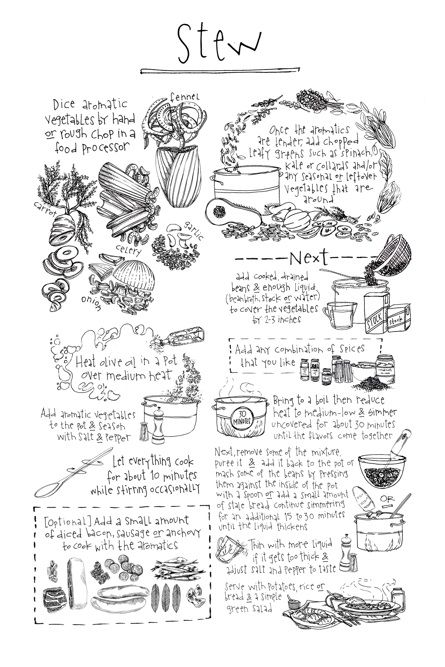 Stew
Dice aromatic
vegetables by hand
or rough chop in a
food processor
fennel
carrot
celery
garlic
onion
Heat olive oil in a pot
over medium heat
Add aromatic vegetables
to the pot & season
with salt & pepper
Let everything cook
for about 10 minutes
while stirring occasionally
[optional] Add a small amount
of diced bacon, sausage or anchovy
to cook with the aromatics
Once the aromatics
are tender, add chopped
leafy greens such as spinach,
kale or collards and/or
any seasonal or leftover
vegetables that are
around
Next
add cooked, drained
beans & enough liquid,
(bean broth, stock or water)
to cover the vegetables
by 2-3 inches
STOCK
stock
Add any combination of spices
that you like
30
MINUTES
Bring to a boil then reduce
heat to medium-low & simmer
uncovered for about 30 minutes
until the flavors come together
Next, remove some of the mixture,
puree it & add it back to the pot or
mash some of the beans by pressing
them against the inside of the pot
with a spoon or add a small amount
of stale bread continue simmering
for an additional 15 to 30 minutes
until the liquid thickens
OR
Thin with more liquid
if it gets too thick &
adjust salt and pepper to taste
Serve with potatoes, rice or
bread & a simple
green salad